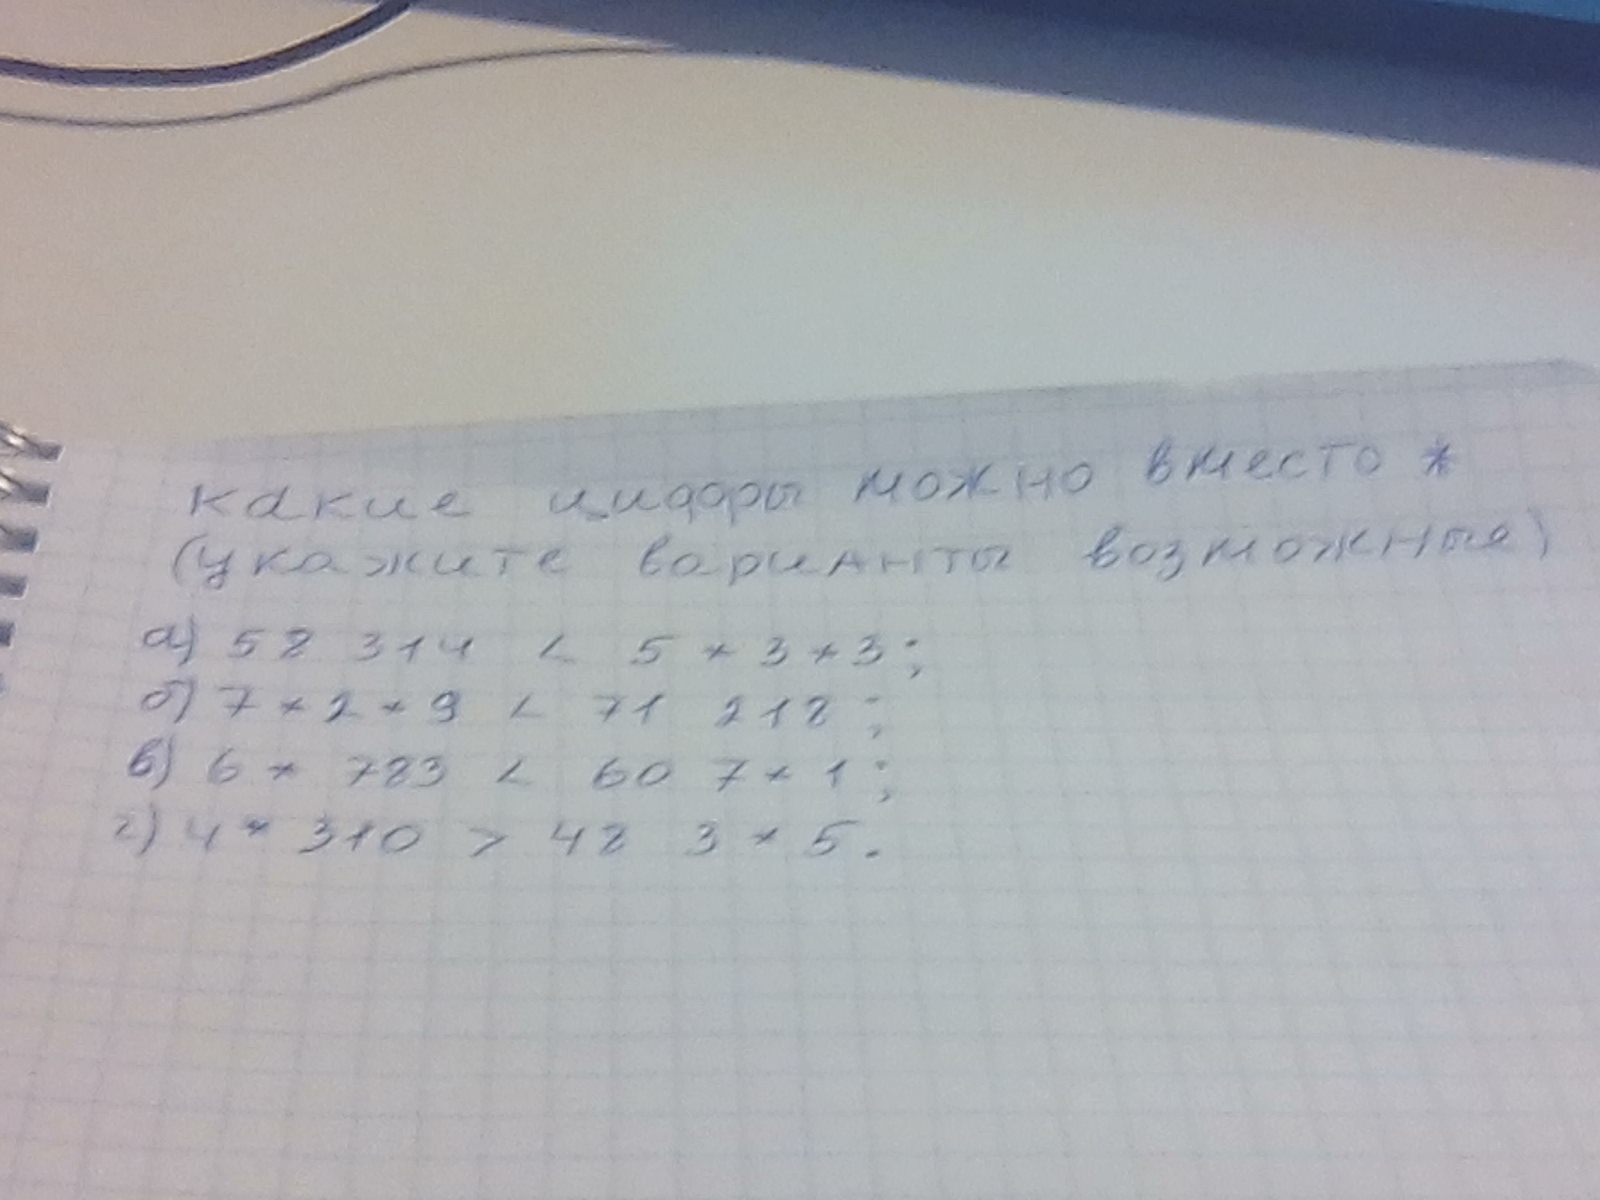 какие цифры можно вместо *
(укажите варианты возможные)
а) 58 314 < 5 * 3 * 3;
б) 7 * 2 * 9 < 71 218;
в) 6 * 783 < 60 7 * 1;
г) 4 * 310 > 48 3 * 5.